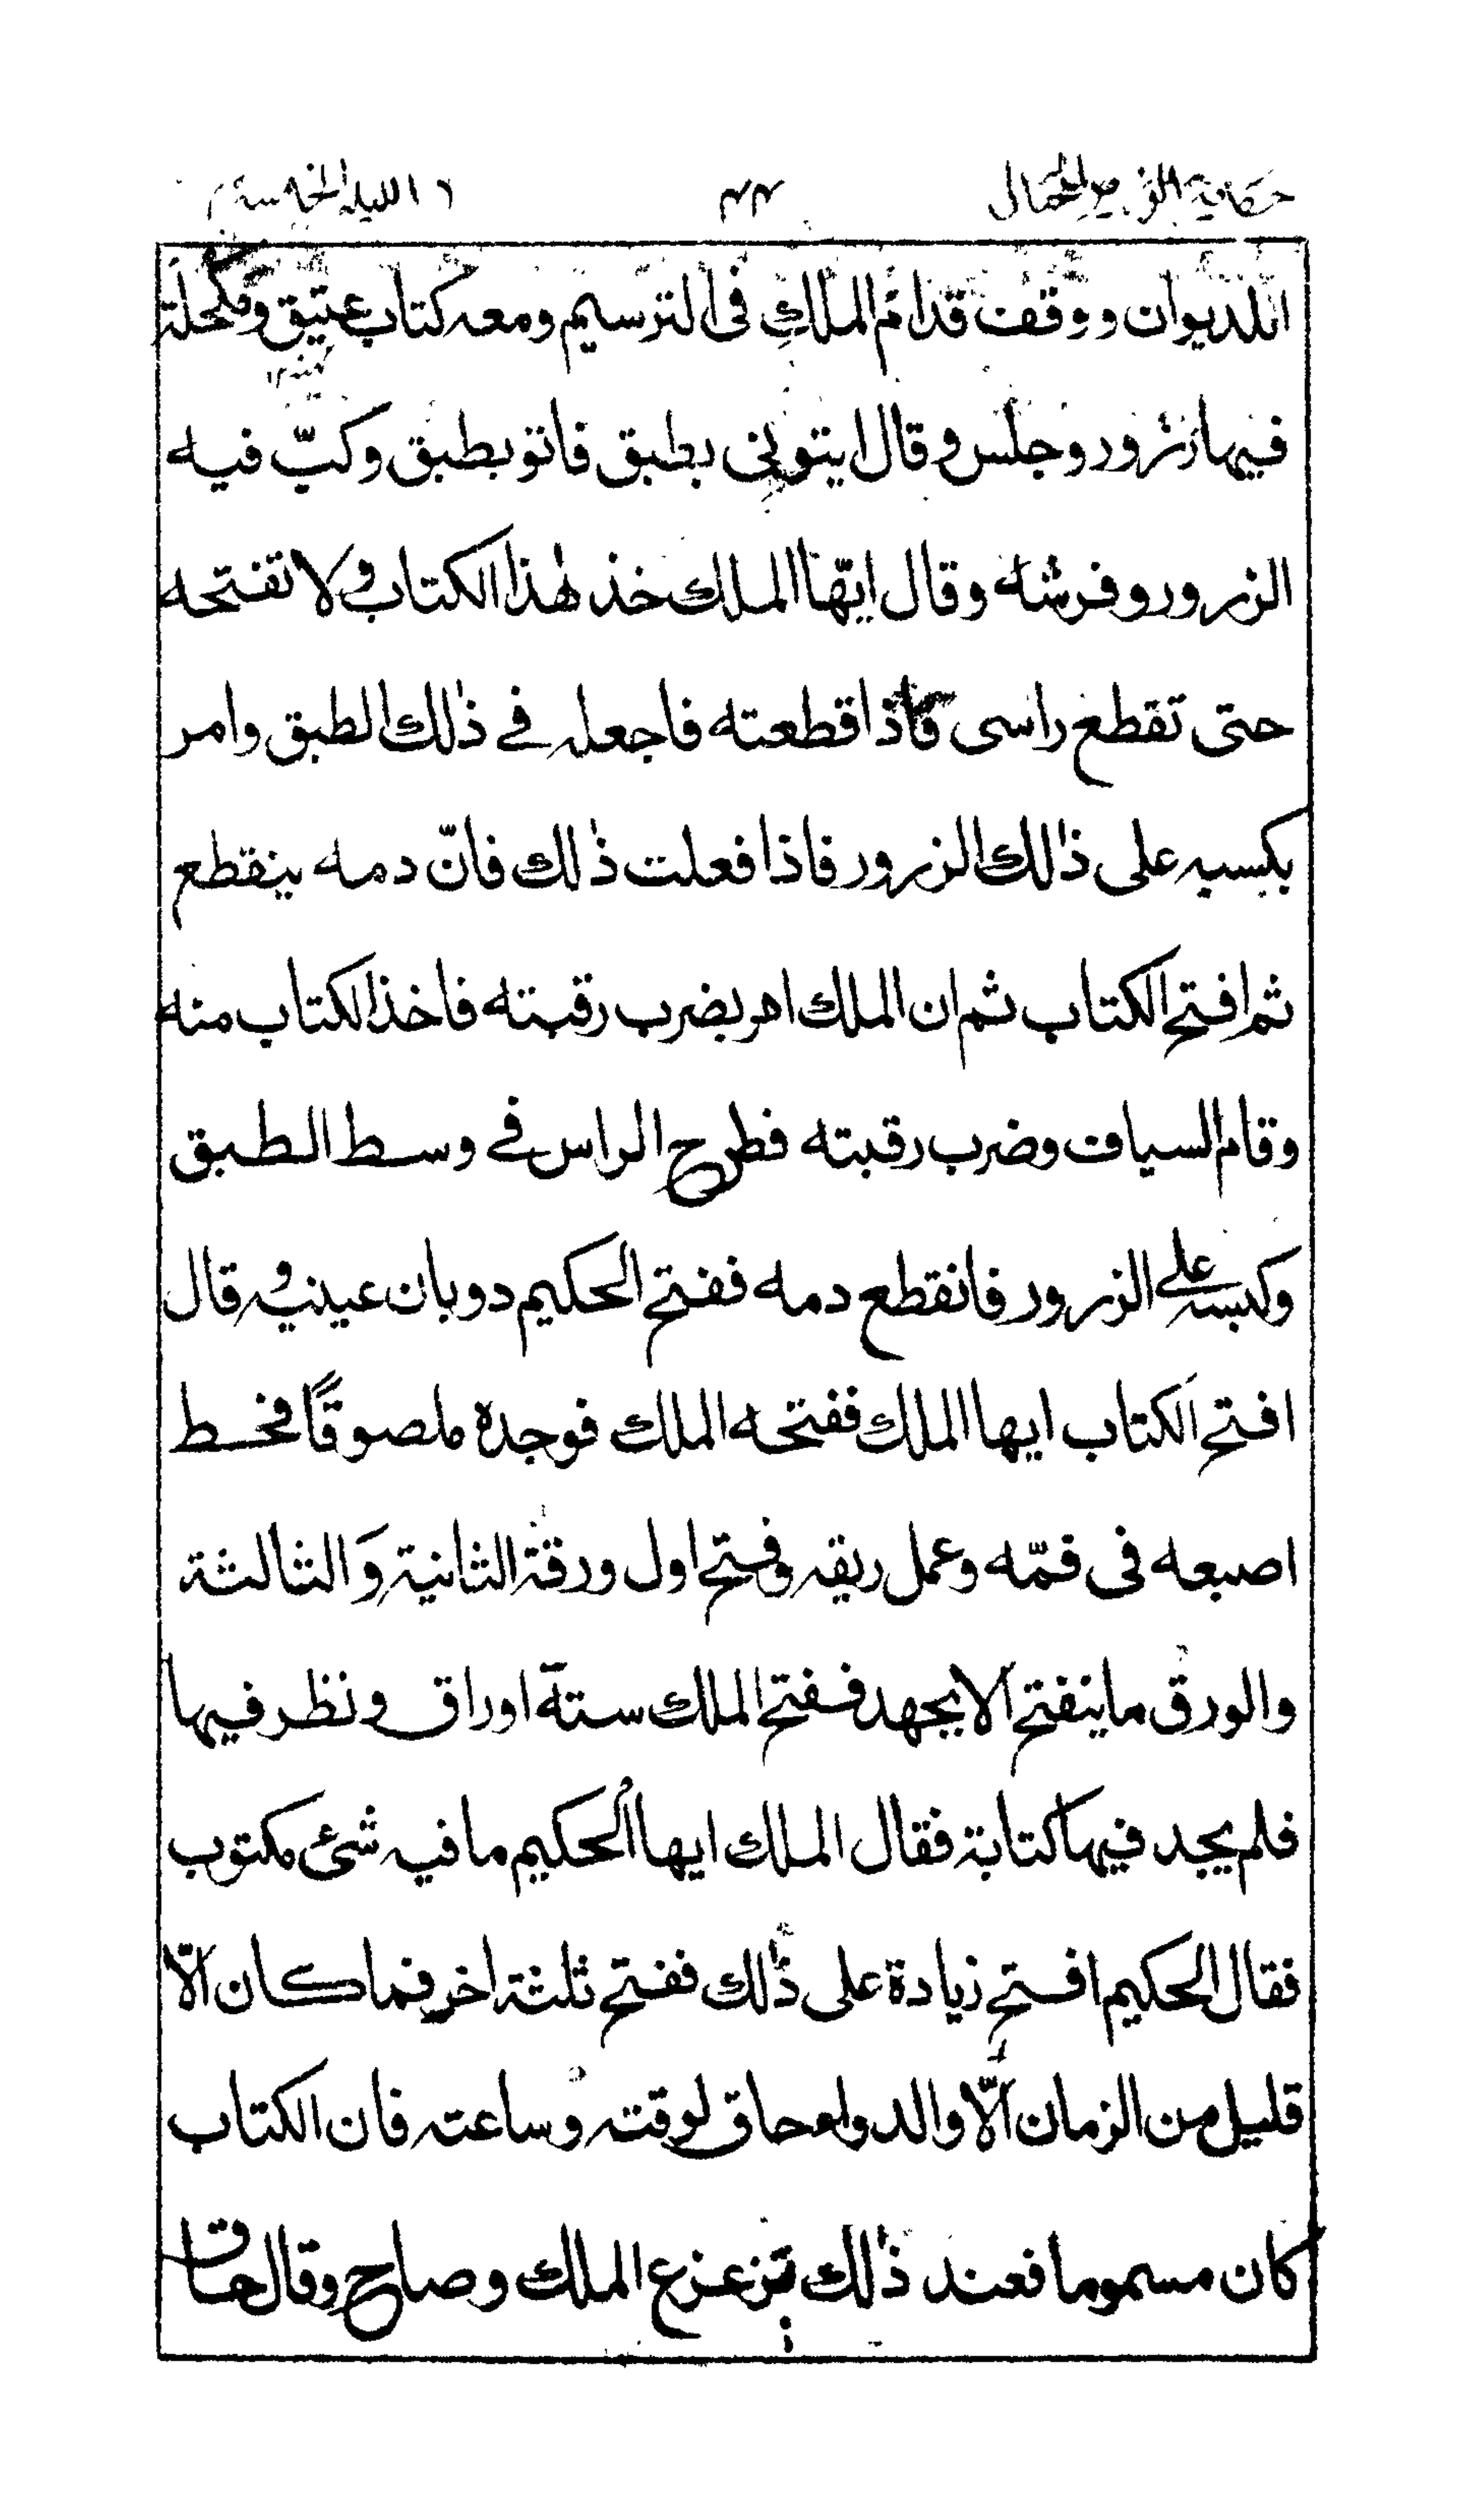 حكاية الوزير مع الحمال ٤٤ الليلة الخامسة
الديوان ووقف قدام الملك فى الترسيم ومعه كتاب عتيق ومكحلة
فيها زرور وجلس وقال ايتونى بطبق فاتو بطبق وكبّ فيه
الزرور وفرشه وقال ايّها الملك خذ هٰذا الكتاب ولا تفتحه
حتى تقطع راسى فاذا قطعته فاجعله فى ذٰلك الطبق وامر
بكبسه على ذٰلك الزرور فاذا فعلت ذٰلك فانّ دمه ينقطع
ثم افتح الكتاب ثم ان الملك امر بضرب رقبته فاخذ الكتاب منه
وقام السياف وضرب رقبته فطرح الراس فى وسط الطبق
وكبسه على الزرور فانقطع دمه ففتح الحكيم دوبان عينيه وقال
افتح الكتاب ايها الملك ففتحه الملك فوجده ملصوقًا فحط
اصبعه فى فمّه وعمل ريقه وفتح اول ورقة الثانية وَالثالثة
والورق ما ينفتح الا بجهد ففتح الملك ستة اوراق ونظر فيها
فلم يجد فيها كتابة فقال الملك ايها الحكيم ما فيه شئ مكتوب
فقال الحكيم افتح زيادة على ذٰلك ففتح ثلثة اخر فما كان الّا
قليل من الزمان الّا والدوا حاق لوقته وساعته فان الكتاب
كان مسموما فعند ذٰلك تزعزع الملك وصاح وقال حاق